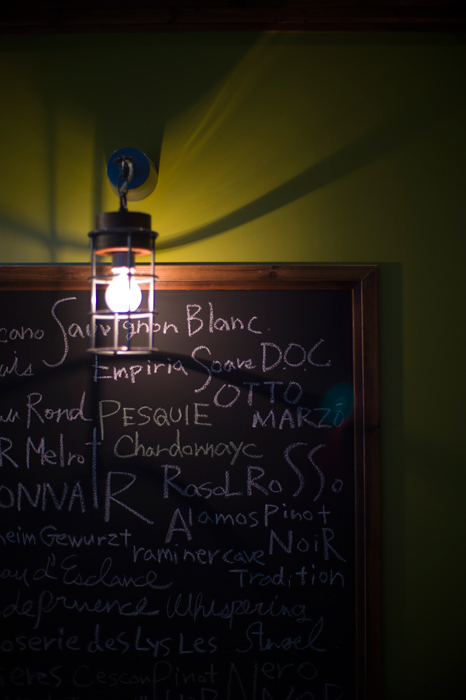 cano Sauvignon Blanc.
uis Empiria Soave D.O.C
OTTO
au Rond PESQUIE MARZO
R Melrot Chardonnayc
ONNAIR RosoLRoSSo
Alamos Pinot
heim Gewurzt raminer cave NoiR
au d'Esclance Tradition
Whispering
oserie des Lys Les Angel
Cescon Pinot Nero